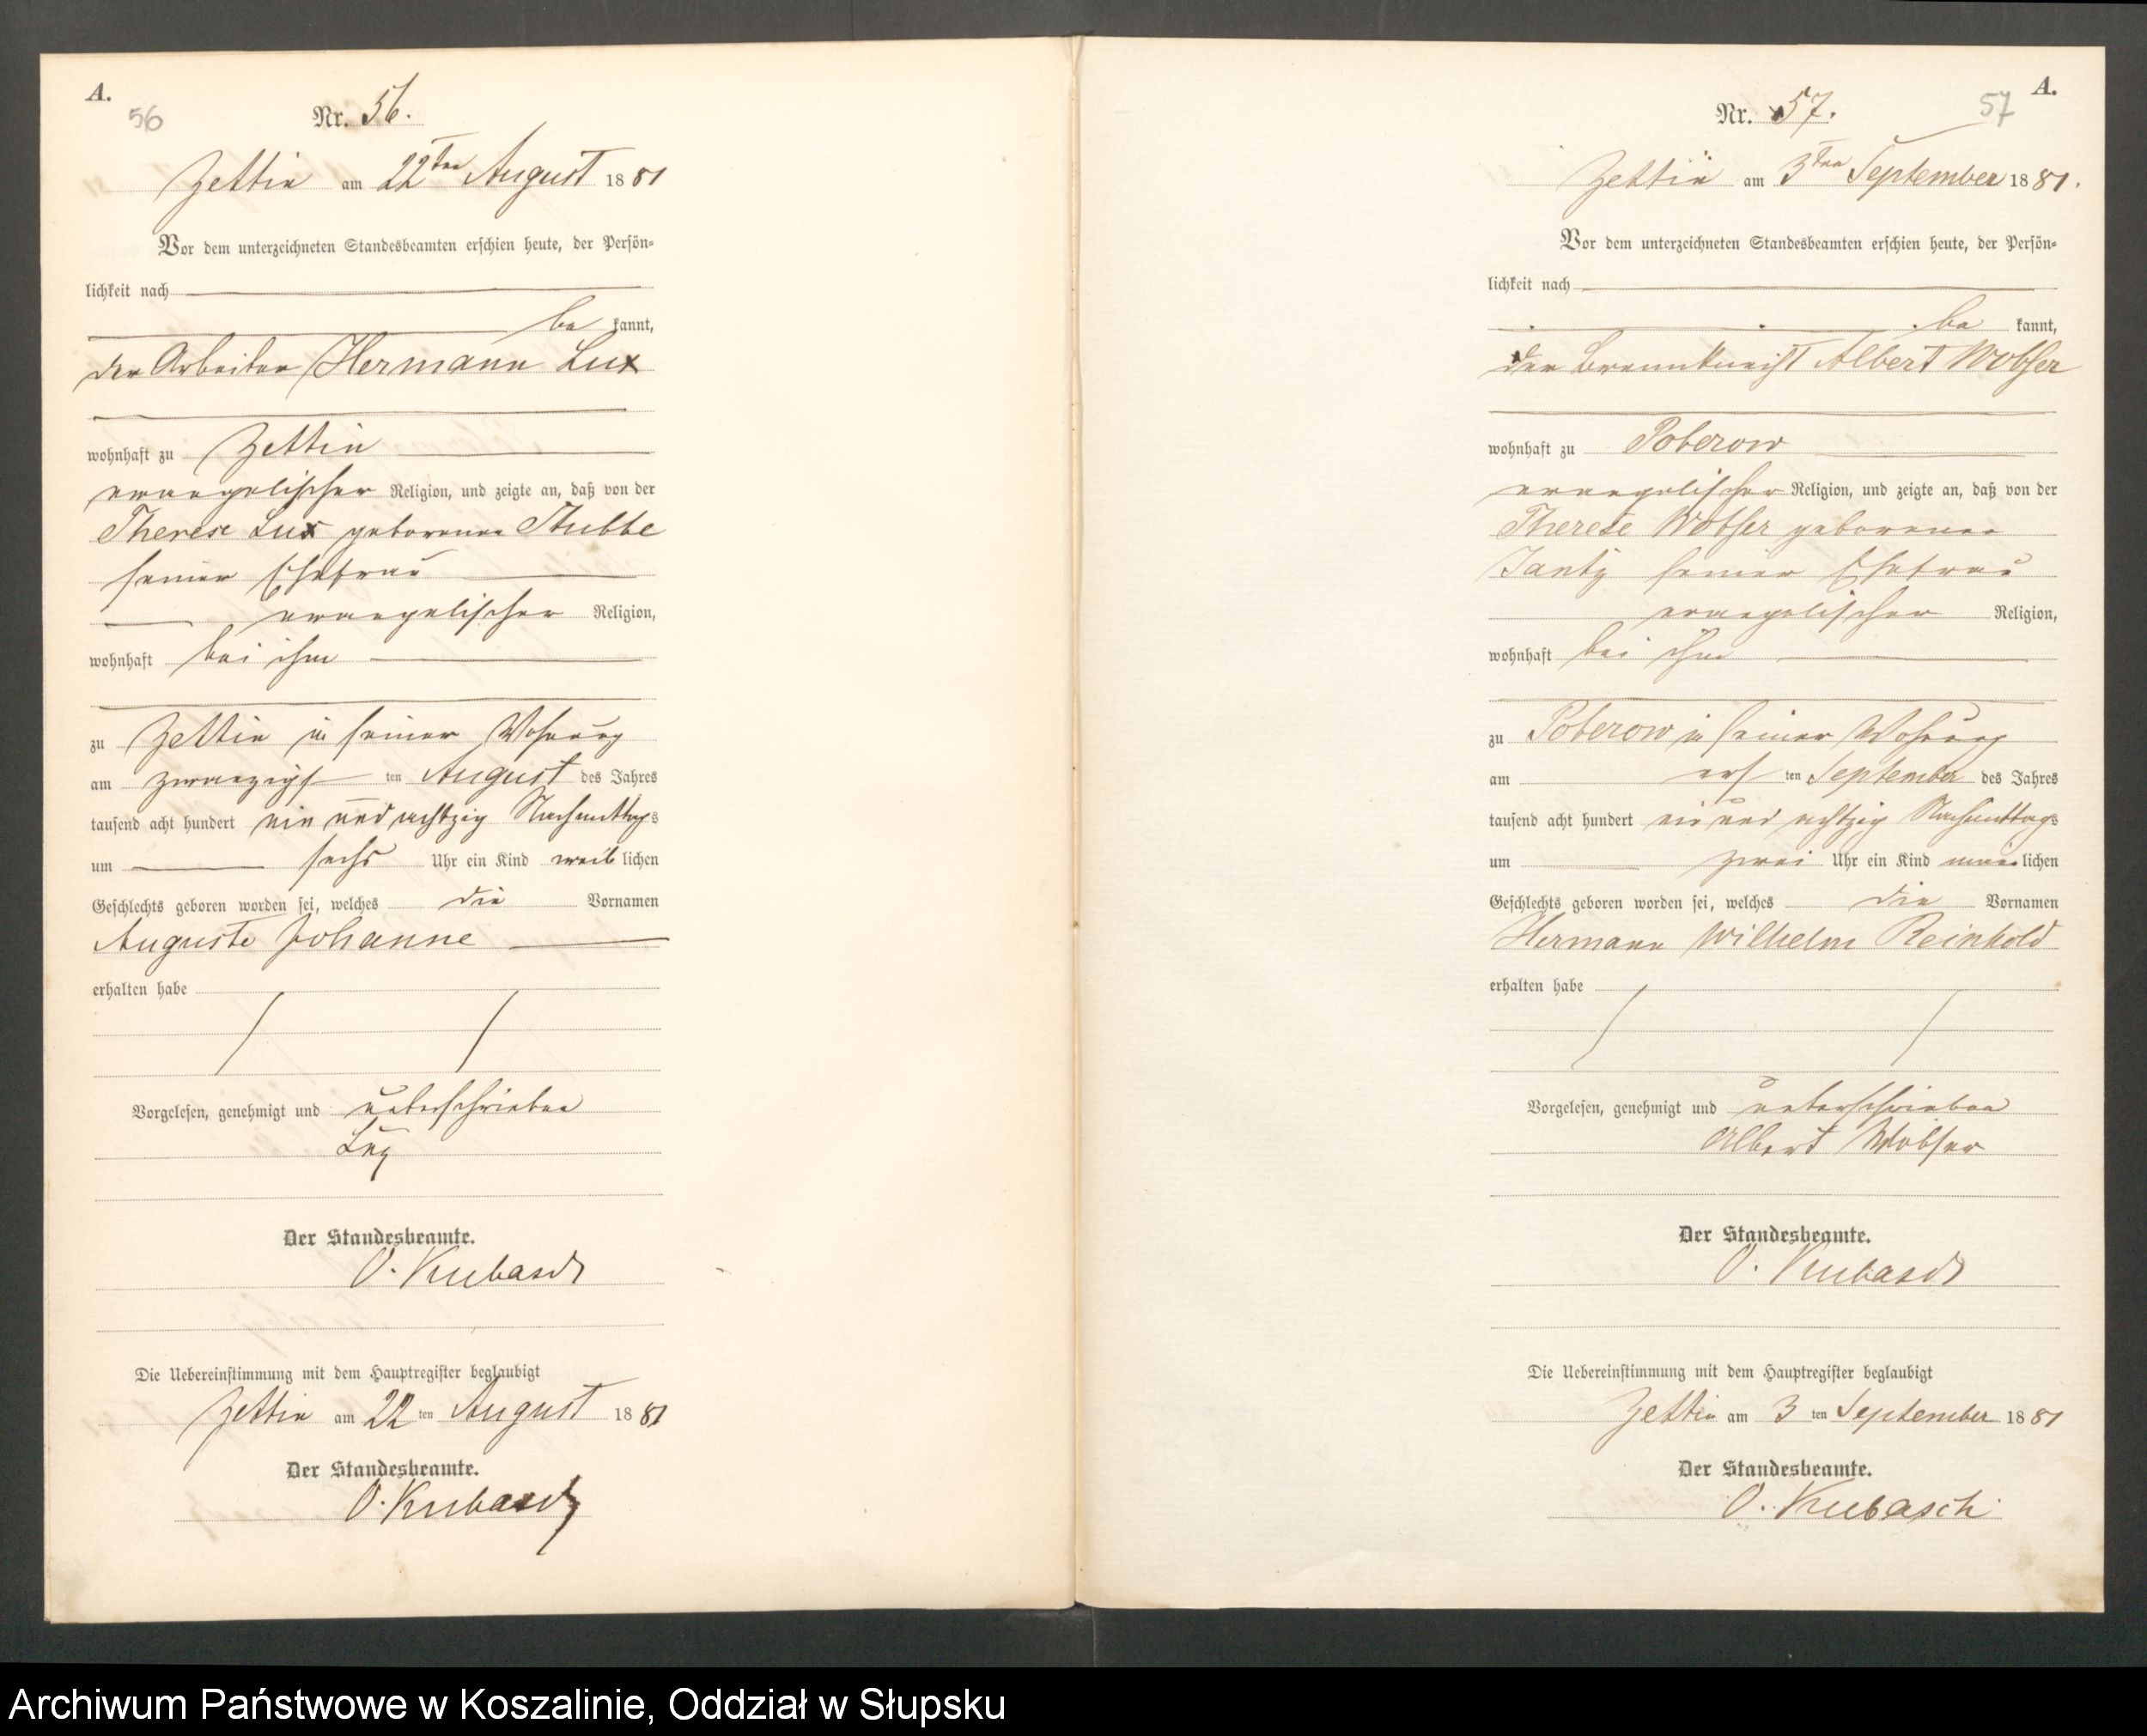 A.
56
Nr. 56.
Zettin am 22ten August 1881
Vor dem unterzeichneten Standesbeamten erschien heute, der Persön-
lichkeit nach
be kannt,
der Arbeiter Hermann Lux
wohnhaft zu Zettin
evangelischer Religion, und zeigte an, daß von der
Therese Lux geborenen Stubbe
seiner Ehefrau
evangelischer Religion,
wohnhaft bei ihm
zu Zettin in seiner Wohnung
am zwanzigsten August des Jahres
tausend acht hundert ein und achtzig Nachmittags
um sechs Uhr ein Kind weiblichen
Geschlechts geboren worden sei, welches die Vornamen
Auguste Johanne
erhalten habe
Vorgelesen, genehmigt und unterschrieben
Lux
Der Standesbeamte.
O. Kubasch
Die Uebereinstimmung mit dem Hauptregister beglaubigt
Zettin am 22ten August 1881
Der Standesbeamte.
O. Kubasch
A.
57
Nr. 57.
Zettin am 3ten September 1881.
Vor dem unterzeichneten Standesbeamten erschien heute, der Persön-
lichkeit nach
be kannt,
der Brennknecht Albert Wobser
wohnhaft zu Poberow
evangelischer Religion, und zeigte an, daß von der
Therese Wobser geborenen
Janty seiner Ehefrau
evangelischer Religion,
wohnhaft bei ihm
zu Poberow in seiner Wohnung
am ersten September des Jahres
tausend acht hundert ein und achtzig Nachmittags
um zwei Uhr ein Kind männlichen
Geschlechts geboren worden sei, welches die Vornamen
Hermann Wilhelm Reinhold
erhalten habe
Vorgelesen, genehmigt und unterschrieben
Albert Wobser
Der Standesbeamte.
O. Kubasch
Die Uebereinstimmung mit dem Hauptregister beglaubigt
Zettin am 3ten September 1881
Der Standesbeamte.
O. Kubasch
Archiwum Państwowe w Koszalinie, Oddział w Słupsku